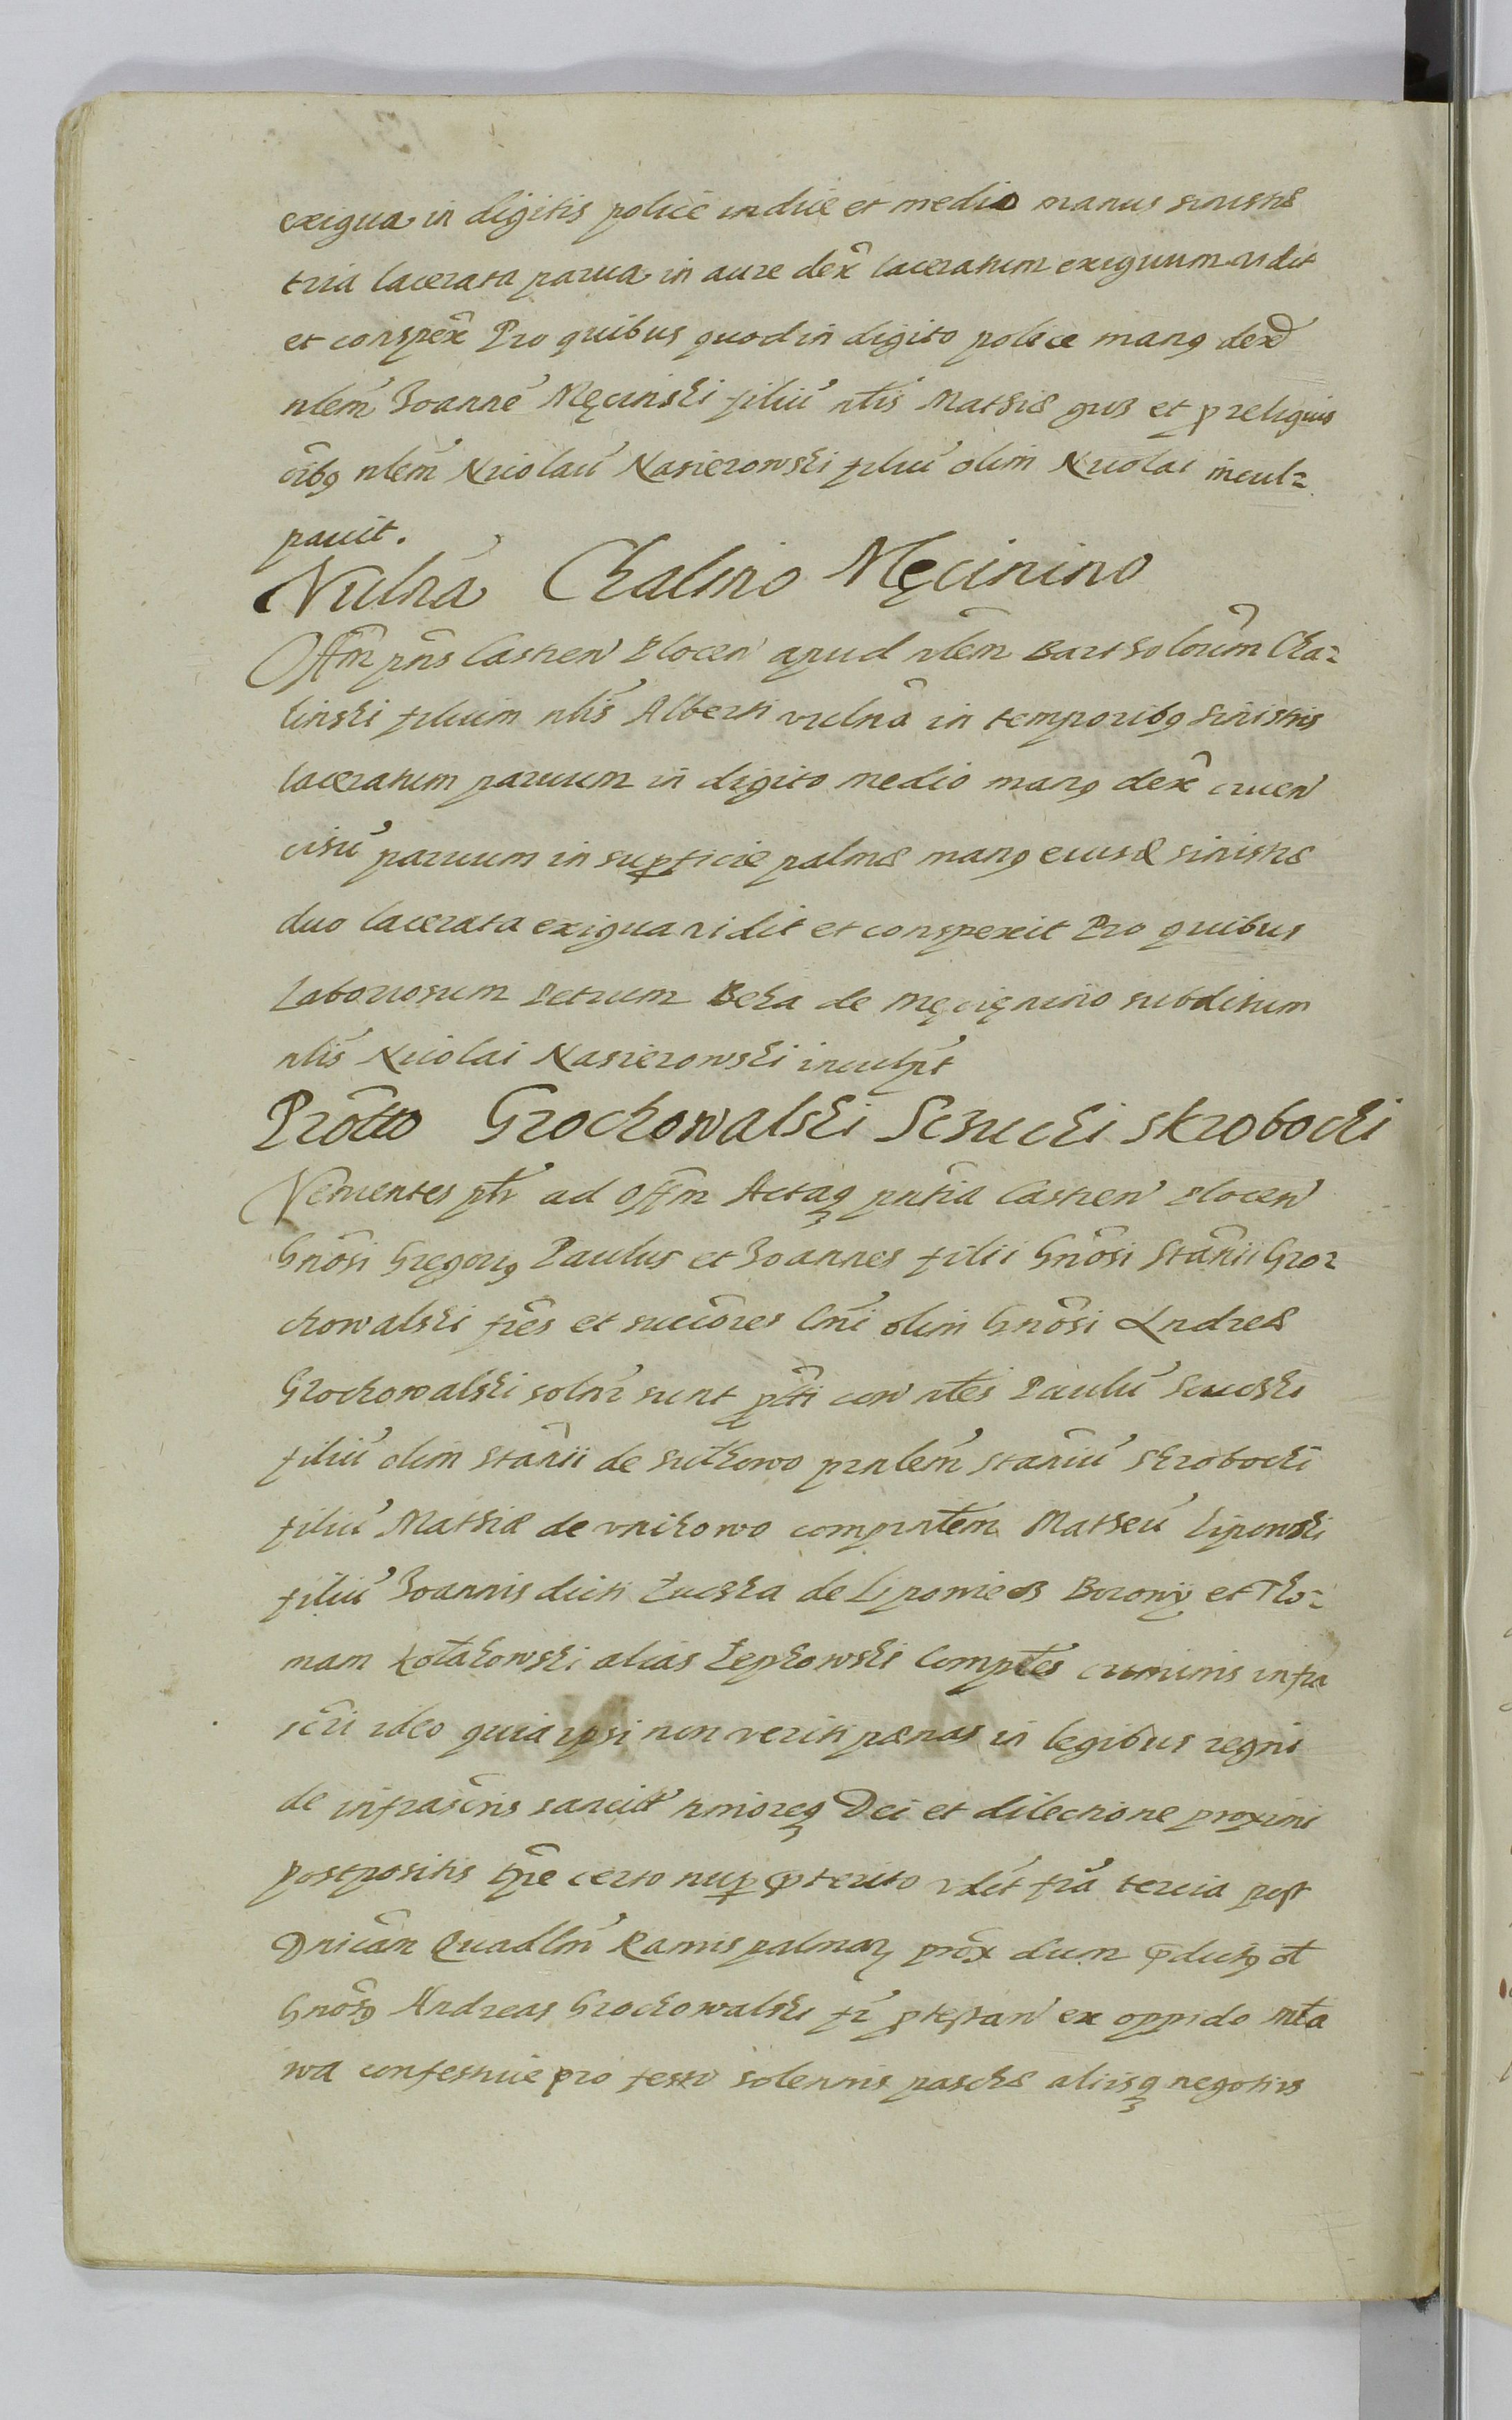 exigua in digitis polic̄e indice et medio manus sinistræ
tria lacerata parua in aure dex̂ laceratum exiguum vidit
et conspex̂ Pro quibus quod in digito police manꝰ dex̂
nłem̄ Joannē Męcinski filiū nłis Mathiæ et ꝑ reliquis
oîbꝰ nłem̄ Nicolaū Nasierowski filiū olim Nicolai incul=
pauit.
Vulnâ Chalino Męcinino
Offm̂ pn̂s Castren̄ Plocen̄ apud nłem̄ Bartholom̂ Cha=
linski filium nłis Alberti vulnâ in temporibꝰ sinistris
laceratum paruum in digito medio manꝰ dex̂ cruen̄
cisū paruum in suꝑficie palmæ manꝰ eiusđ sinistræ
duo lacerata exigua vidit et conspexit Pro quibus
Laboriosum Petrum Beka de Męcięnino subditum
nłis Nicolai Nasierowski inculpt̄
Prôtto Grochowalski Sczucki Skrobocki
Venientes ptr̄ ad Offm̂ Actaqꝫ pn̂tia Castren̄ Plocen̄
Gnôsi Gregoriꝰ Paulus et Joannes filii Gnôsi Stânii Gro=
chowalski frês et succôres Gni olim Gnôsi Andreæ
Grochowalski soln̄r sunt ꝓtti con̄ nłes Paulū Scucski
filiū olim Stânii de Sutkowo prnłem̄ Staniū Skrobocki
filiū Mathiæ de vnikowo comprnłem̄ Matheū Lipowski
filiū Joannis dicti Łucska de Lipowiecz Borowÿ et Tho=
mam Kołakowski alias Łepkowski Comptes criminis infra
scri ideo quia ipsi non veriti pænas in legibus regni
de infrascris sancit̄ timoreqꝫ Dei et dilectione proximi
postpositis tp̂re certo nuꝑ p̄terito vdēt frâ tercia post
Dnicâm Quadlm̄ Ramispalmarꝫ prôx dum p̄dictꝰ oł
Gnôsꝰ Andreas Grochowalski fr̄ ꝓtestan̄ ex oppido Mła
wa confestiue pro festo solennis paschæ aliisqꝫ negotiis